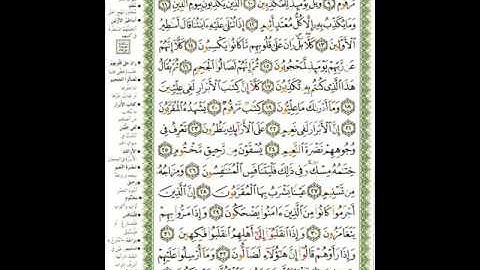 مَّرْقُومٌ ٩ وَيْلٌ يَوْمَئِذٍ لِّلْمُكَذِّبِينَ ١٠ ٱلَّذِينَ يُكَذِّبُونَ بِيَوْمِ ٱلدِّينِ ١١
وَمَا يُكَذِّبُ بِهِۦٓ إِلَّا كُلُّ مُعْتَدٍ أَثِيمٍ ١٢ إِذَا تُتْلَىٰ عَلَيْهِ ءَايَٰتُنَا قَالَ أَسَٰطِيرُ
ٱلْأَوَّلِينَ ١٣ كَلَّا بَلْ رَانَ عَلَىٰ قُلُوبِهِم مَّا كَانُوا۟ يَكْسِبُونَ ١٤ كَلَّآ إِنَّهُمْ
عَن رَّبِّهِمْ يَوْمَئِذٍ لَّمَحْجُوبُونَ ١٥ ثُمَّ إِنَّهُمْ لَصَالُوا۟ ٱلْجَحِيمِ ١٦ ثُمَّ يُقَالُ
هَٰذَا ٱلَّذِى كُنتُم بِهِۦ تُكَذِّبُونَ ١٧ كَلَّآ إِنَّ كِتَٰبَ ٱلْأَبْرَارِ لَفِى عِلِّيِّينَ
١٨ وَمَآ أَدْرَىٰكَ مَا عِلِّيُّونَ ١٩ كِتَٰبٌ مَّرْقُومٌ ٢٠ يَشْهَدُهُ ٱلْمُقَرَّبُونَ
٢١ إِنَّ ٱلْأَبْرَارَ لَفِى نَعِيمٍ ٢٢ عَلَى ٱلْأَرَآئِكِ يَنظُرُونَ ٢٣ تَعْرِفُ فِى
وُجُوهِهِمْ نَضْرَةَ ٱلنَّعِيمِ ٢٤ يُسْقَوْنَ مِن رَّحِيقٍ مَّخْتُومٍ ٢٥
خِتَٰمُهُۥ مِسْكٌ وَفِى ذَٰلِكَ فَلْيَتَنَافَسِ ٱلْمُتَنَٰفِسُونَ ٢٦ وَمِزَاجُهُۥ
مِن تَسْنِيمٍ ٢٧ عَيْنًا يَشْرَبُ بِهَا ٱلْمُقَرَّبُونَ ٢٨ إِنَّ ٱلَّذِينَ
أَجْرَمُوا۟ كَانُوا۟ مِنَ ٱلَّذِينَ ءَامَنُوا۟ يَضْحَكُونَ ٢٩ وَإِذَا مَرُّوا۟ بِهِمْ
يَتَغَامَزُونَ ٣٠ وَإِذَا ٱنقَلَبُوٓا۟ إِلَىٰٓ أَهْلِهِمُ ٱنقَلَبُوا۟ فَكِهِينَ ٣١
وَإِذَا رَأَوْهُمْ قَالُوٓا۟ إِنَّ هَٰٓؤُلَآءِ لَضَآلُّونَ ٣٢ وَمَآ أُرْسِلُوا۟ عَلَيْهِمْ